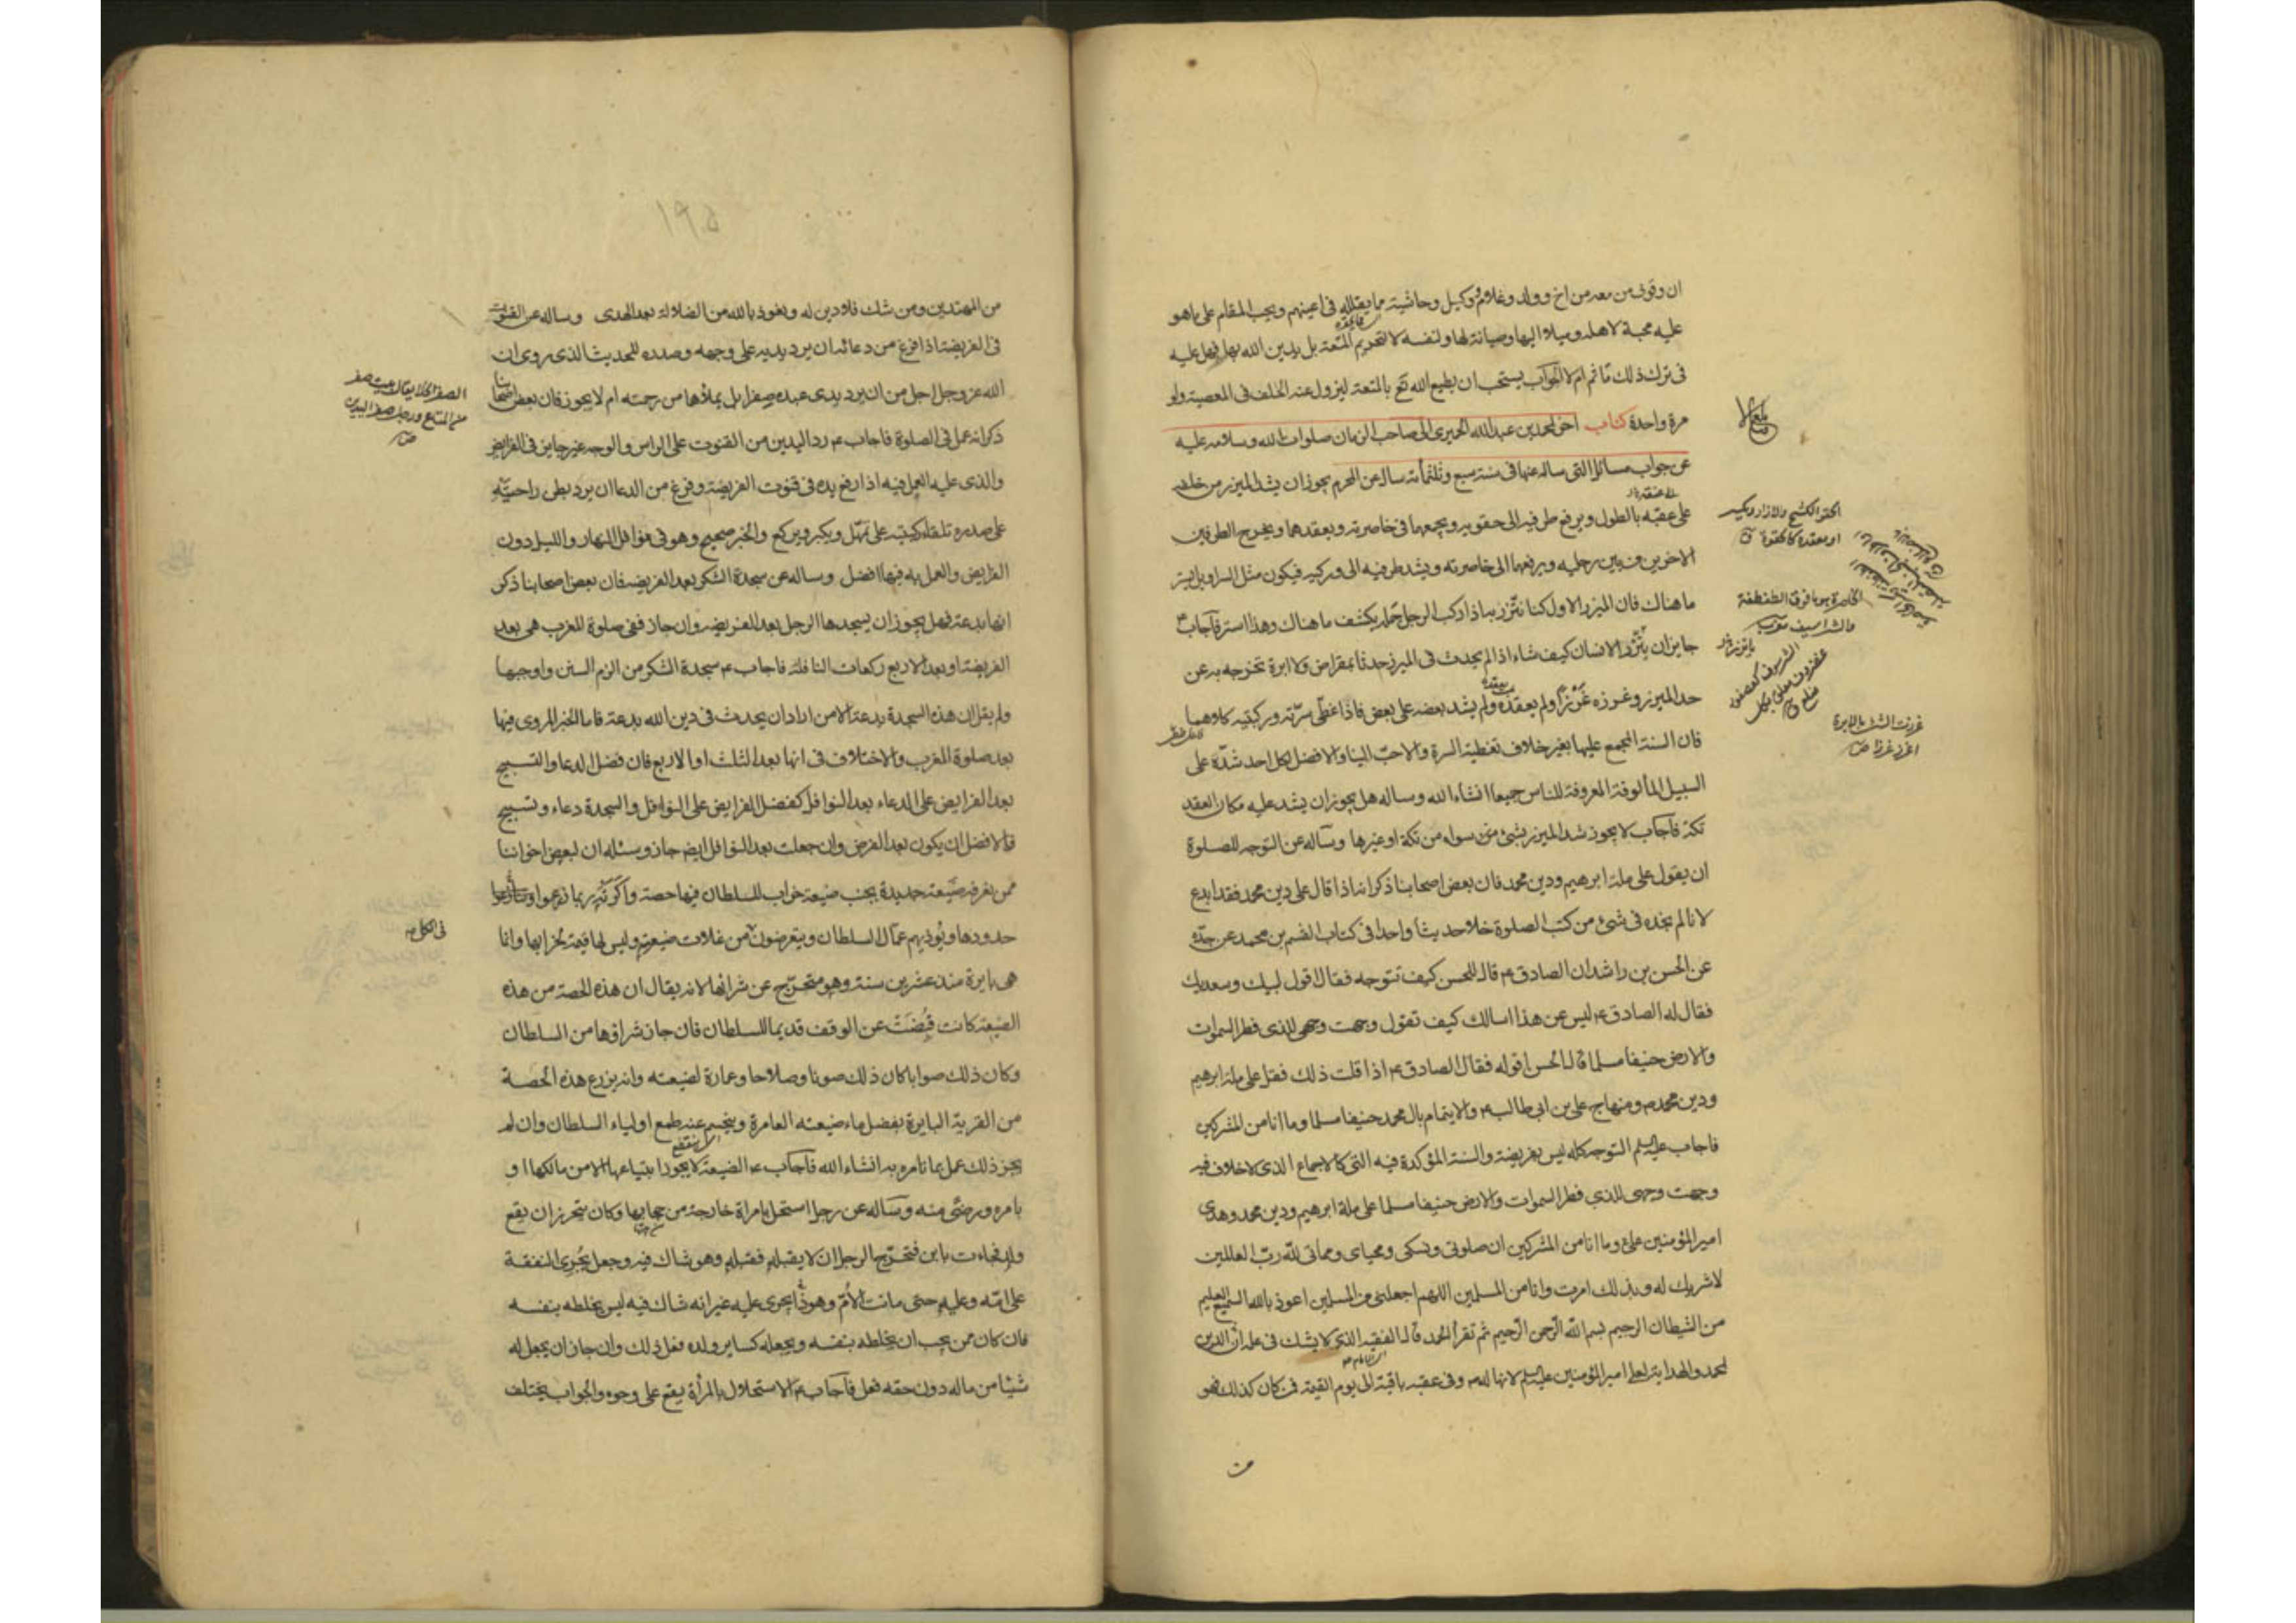 ان وقوفى من معه من اخ وولد وغلام ووكيل وحاشية مما يقلله فى اعينهم ويحب المقام على ماهو
عليه محبة لاهله وميلا اليها وصيانة لها ولنفسه لا لتحريم المتعة بل يدين الله بها فهل عليه
فى ترك ذلك مأثم ام لا الجواب يستحب ان يطيع الله تع بالمتعة ليزول عنه الحلف فى المعصية ولو
مرة واحدة كتاب اخر لمحمد بن عبد الله الحميرى الى صاحب الزمان صلوات الله وسلامه عليه
عن جواب مسائل التى ساله عنها فى سنة سبع وثلثمائة ساله عن المحرم يجوز ان يشد الميزر من خلفه
على عقبه بالطول ويرفع طرفيه الى حقويه ويجمعهما فى خاصرته ويعقدهما ويخرج الطرفين
الاخرين من بين رجليه ويرفعهما الى خاصرته ويشد طرفيه الى وركيه فيكون مثل السراويل يستر
ما هناك فان الميزر الاول كنا نتزر به اذا ركب الرجل جمله يكشف ما هناك وهذا استر فاجاب ع
جايز ان يتزر الانسان كيف شاء اذا لم يحدث فى الميزر حدثا بمقراض ولا ابرة تخرجه به عن
حد الميزر وغرزه غرزا ولم يعقده ولم يشد بعضه على بعض فاذا غطى سرته وركبتيه كلاهما
فان السنة المجمع عليها بغير خلاف تغطية السرة والاحب الينا والافضل لكل احد شده على
السبيل المألوفة المعروفة للناس جميعا انشاء الله وساله هل يجوز ان يشد عليه مكان العقد
تكة فاجاب لا يجوز شد الميزر بشئ من سواه من تكة او غيرها وساله عن التوجه للصلوة
ان يقول على ملة ابرهيم ودين محمد فان بعض اصحابنا ذكر انه اذا قال على دين محمد فقد ابدع
لانا لم نجده فى شئ من كتب الصلوة خلا حديثا واحدا فى كتاب القسم بن محمد عن جده
عن الحسن بن راشد ان الصادق ع قال للحسن كيف تتوجه فقال اقول لبيك وسعديك
فقال له الصادق ع ليس عن هذا اسالك كيف تقول وجهت وجهى للذى فطر السموات
والارض حنيفا مسلما قال الحسن اقوله فقال الصادق ع اذا قلت ذلك فقل على ملة ابرهيم
ودين محمد ص ومنهاج على بن ابى طالب ع والايتمام بال محمد حنيفا مسلما وما انا من المشركين
فاجاب عليه السلم التوجه كله ليس بفريضة والسنة المؤكدة فيه التى كالاجماع الذى لا خلاف فيه
وجهت وجهى للذى فطر السموات والارض حنيفا مسلما على ملة ابرهيم ودين محمد وهدى
امير المؤمنين على وما انا من المشركين ان صلوتى ونسكى ومحياى ومماتى لله رب العالمين
لا شريك له وبذلك امرت وانا من المسلمين اللهم اجعلنى من المسلمين اعوذ بالله السميع العليم
من الشيطان الرجيم بسم الله الرحمن الرحيم ثم تقرأ الحمد قال الفقيه الذى لا يشك فى علمه ان الدين
لمحمد والهداية لعلى امير المؤمنين عليه السلم لانها له ص وفى عقبه باقية الى يوم القيمة فمن كان كذلك فهو
من
الحقو الكشح والازار ويكسر
او معقده كالحقوة ق
الخاصرة
غرزت الشئ بالابرة
اغرز غرزا ص
١٩٥
من المهتدين ومن شك فلا دين له ونعوذ بالله من الضلالة بعد الهدى وساله عن القنوت
فى الفريضة اذا فرغ من دعائه ان يرد يديه على وجهه وصدره للحديث الذى روى ان
الله عز وجل اجل من ان يرد يدى عبده صفرا بل يملؤها من رحمته ام لا يجوز فان بعض اصحابنا
ذكر انه عمل فى الصلوة فاجاب ع رد اليدين من القنوت على الراس والوجه غير جايز فى الفرايض
والذى عليه العمل فيه اذا رفع يده فى قنوت الفريضة وفرغ من الدعا ان يرد بطن راحتيه
على صدره تلقاء ركبتيه على تمهل ويكبر ويركع والخبر صحيح وهو فى نوافل النهار والليل دون
الفرايض والعمل به فيها افضل وساله عن سجدة الشكر بعد الفريضة فان بعض اصحابنا ذكر
انها بدعة فهل يجوز ان يسجدها الرجل بعد الفريضة وان جاز ففى صلوة المغرب هى بعد
الفريضة او بعد الاربع ركعات النافلة فاجاب ع سجدة الشكر من الزم السنن واوجبها
ولم يقل ان هذه السجدة بدعة الا من اراد ان يحدث فى دين الله بدعة فاما الخبر المروى فيها
بعد صلوة المغرب والاختلاف فى انها بعد الثلث او الاربع فان فضل الدعا والتسبيح
بعد الفرايض على الدعاء بعد النوافل كفضل الفرايض على النوافل والسجدة دعاء وتسبيح
فالافضل ان يكون بعد الفرض وان جعلت بعد النوافل ايضا جاز وسئله ان لبعض اخواننا
ممن نعرفه ضيعة جديدة بجنب ضيعة خراب للسلطان فيها حصة واكرته ربما زرعوا
حدودها ويؤذيهم عمال السلطان ويتعرضون من غلات ضيعته وليس لها قيمة لخرابها وانما
هى بايرة منذ عشرين سنة وهو متحرج عن شرائها لانه يقال ان هذه الحصة من هذه
الضيعة كانت قبضت عن الوقف قديما للسلطان فان جاز شراؤها من السلطان
وكان ذلك صوابا كان ذلك صونا وصلاحا وعمارة لضيعته وانه يزرع هذه الحصة
من القرية البايرة بفضل ماء ضيعته العامرة وينحسم عنه طمع اولياء السلطان وان لم
يجز ذلك عمل بما تامره به انشاء الله فاجاب ع الضيعة لا يجوز ابتياعها الا من مالكها او
بامره ورضى منه وساله عن رجل استحل بامراة خارجة من حجابها وكان يتحرز ان يقع
ولد فجاءت بابن فتحرج الرجل ان لا يقبله فقبله وهو شاك فيه وجعل يجرى النفقة
على امه وعليه حتى ماتت الام وهو ذا يجرى عليه غير انه شاك فيه ليس يخلطه بنفسه
فان كان ممن يجب ان يخلطه بنفسه ويجعله كساير ولده فعل ذلك وان جاز ان يجعل له
شيئا من ماله دون حقه فعل فاجاب ع الاستحلال بالمرأة يقع على وجوه والجواب يختلف